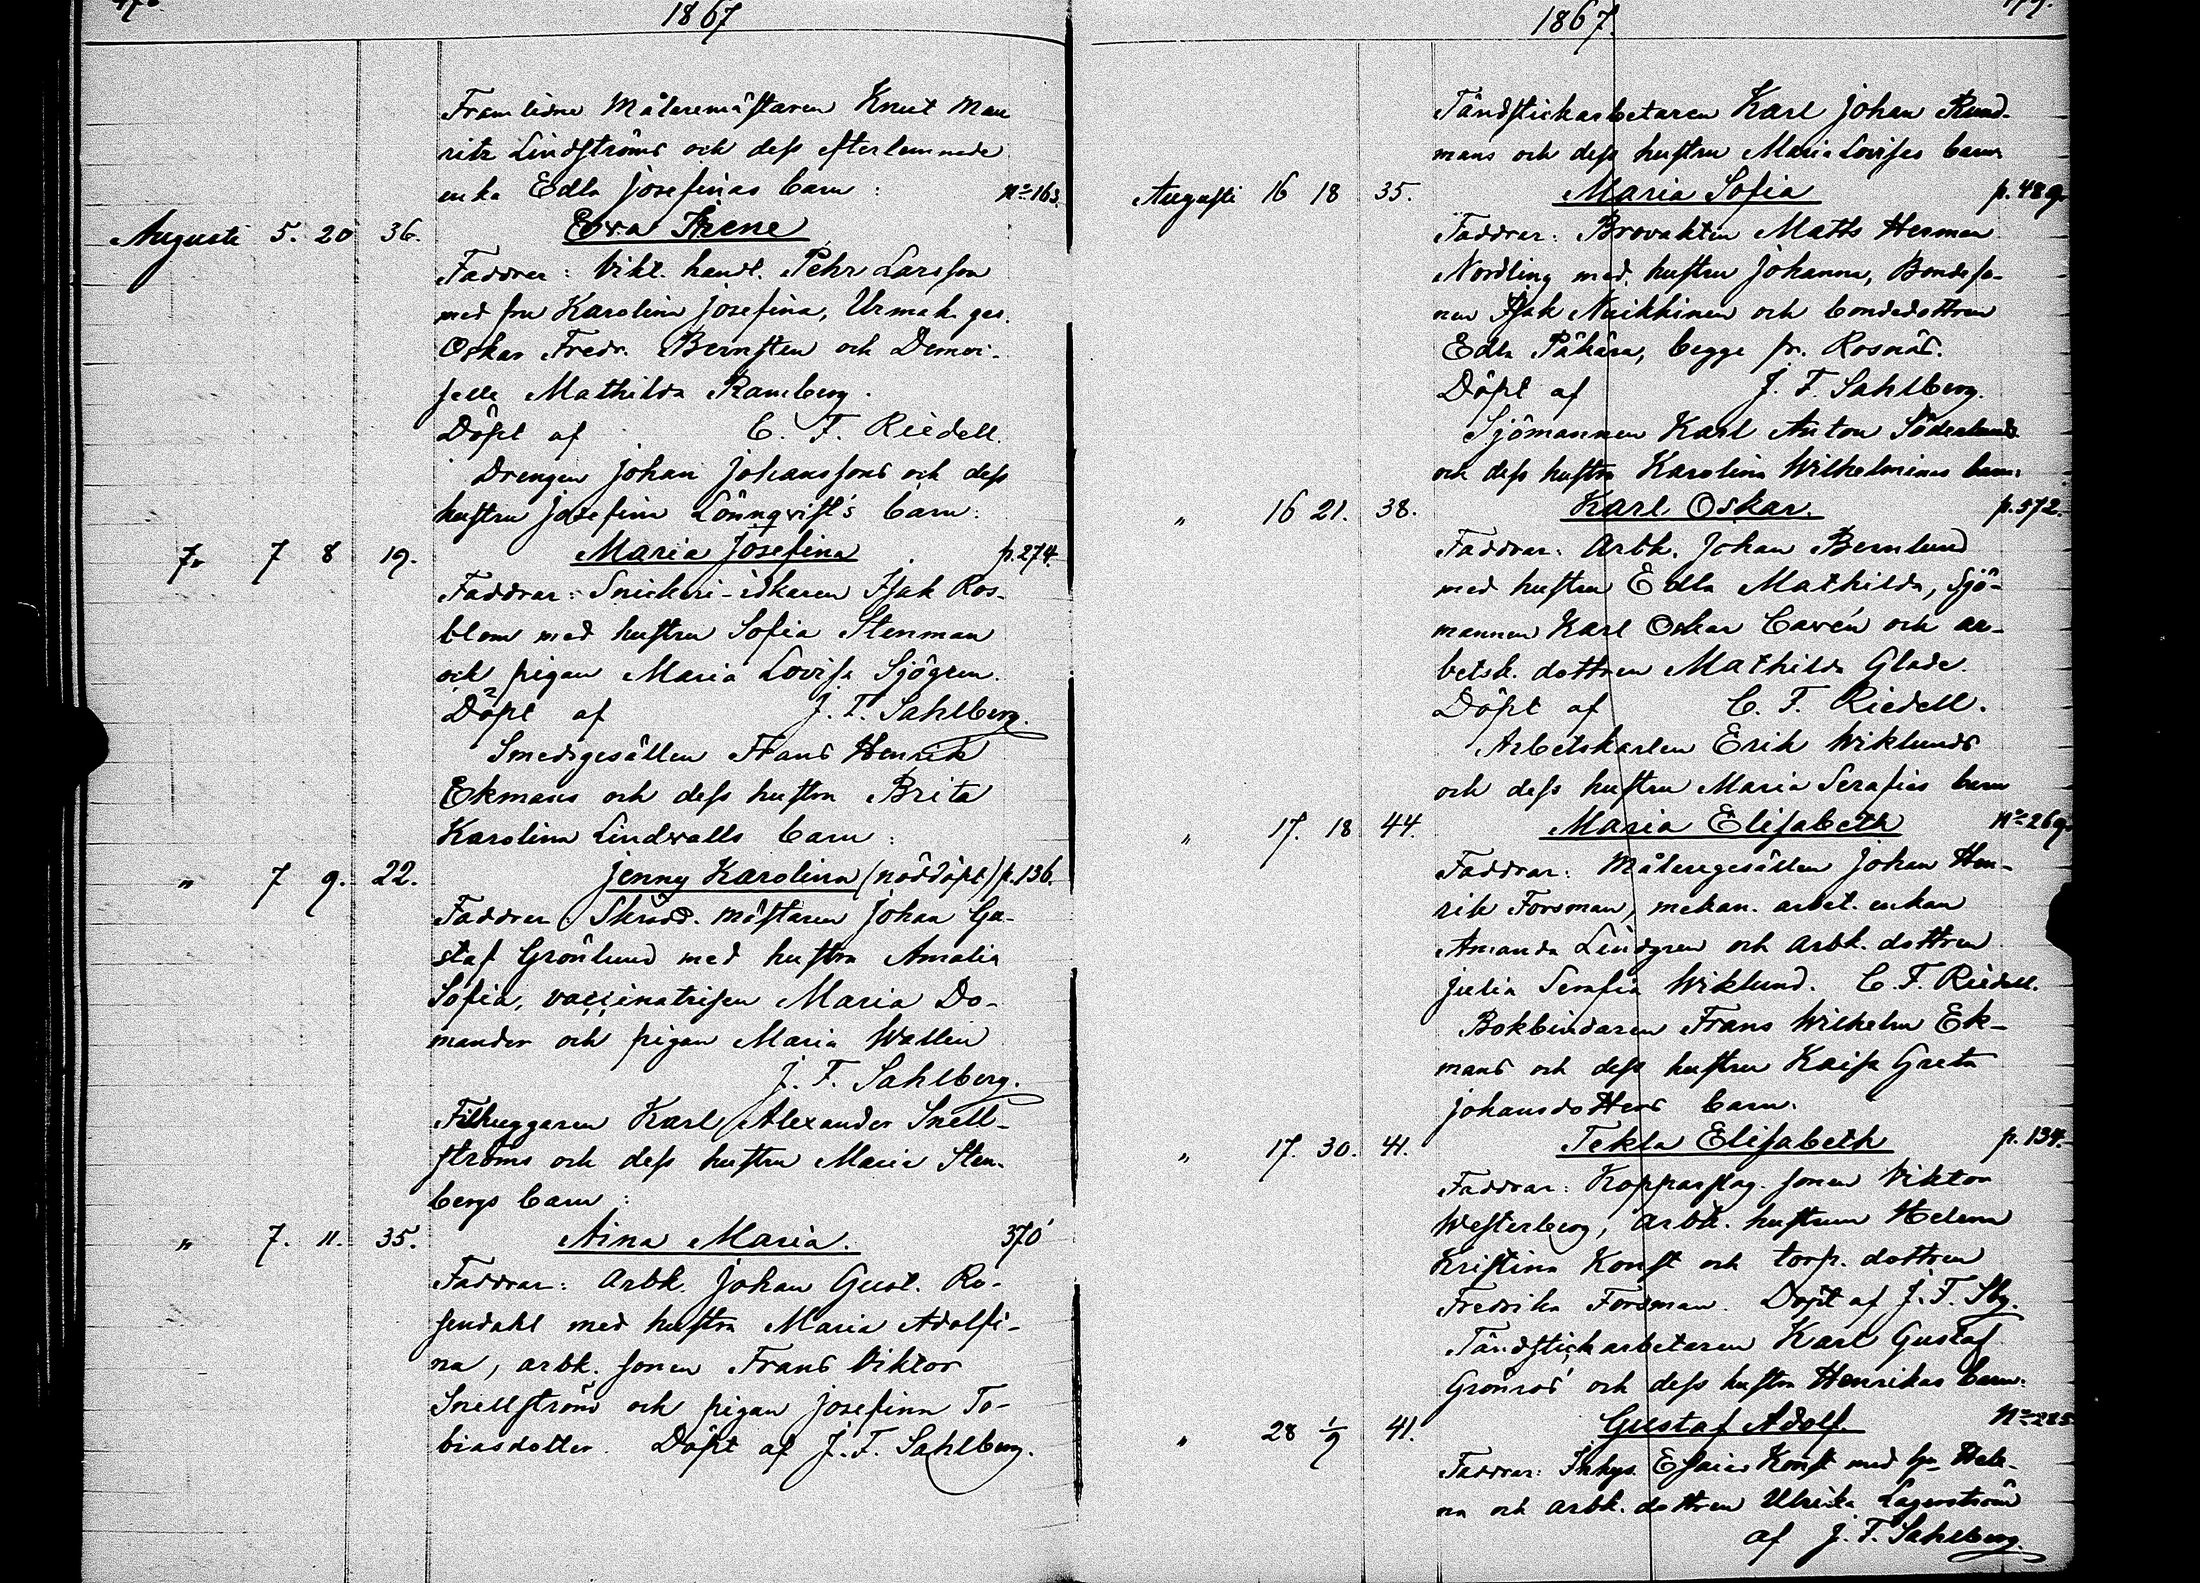 1867
Framlidne Målaremästaren Knut Mau
ritz Lindströms och dess efterlemnade
enka Edla Josefinas barn: No 163.
Augusti 5. 20 36. Eva Irene
Faddrar: Vikt. handl. Pehr Larsson
med fru Karolina Josefina, Urmak. ges.
Oskar Fredr. Bernsten och Demoi-
selle Mathilda Ramberg.
Döpt af C. F. Riedell.
Drengen Johan Johanssons och dess
hustru Josefina Lönnqvist's barn:
7 8 19. Maria Josefina p. 274.
Faddrar: Snickeri-idkaren Isak Ros-
blom med hustru Sofia Stenman
och pigan Maria Lovisa Sjögren.
Döpt af J. F. Sahlberg.
Smedsgesällen Frans Henrik
Ekmans och dess hustru Brita
Karolina Lindwalls barn:
" 7 9. 22. Jenny Karolina (nöddöpt) p. 136.
Faddrar: Skrädd. mästaren Johan Gu-
staf Grönlund med hustru Amalia
Sofia, vaccinatrisen Maria Do-
mander och pigan Maria Wallen
J. F. Sahlberg.
Filhuggaren Karl Alexander Snell-
ströms och dess hustru Maria Sten-
bergs barn:
" 7. 11. 35. Aina Maria. 370
Faddrar: Arbk. Johan Gust. Ro-
sendahl med hustru Maria Adolfi-
na, arbk. sonen Frans Viktor
Snellström och pigan Josefina To-
biasdotter. Döpt af J. F. Sahlberg.
1867.
Tändstickarbetaren Karl Johan Rund-
mans och dess hustru Maria Lovisas barn
Augusti 16 18 35. Maria Sofia p. 489.
Faddrar: Brovakten Matts Herman
Nordling med hustru Johanna, Bondeso-
nen Isak Naikkinen och bondedottren
Edla Päkära, begge fr. Rosnäs.
Döpt af J. F. Sahlberg.
Sjömannen Karl Anton Söderlunds
och dess hustru Karolina Wilhelminas barn:
" 16 21. 38. Karl Oskar. p. 572.
Faddrar: Arbk. Johan Bernlund
med hustru Edla Mathilda, Sjö-
mannen Karl Oskar Cavén och ar-
betsk. dottren Mathilda Glade.
Döpt af C. F. Riedell.
Arbetskarlen Erik Wiklunds
och dess hustru Maria Serafias barn
" 17. 18 44. Maria Elisabeth No 269.
Faddrar: Målaregesällen Johan Hen-
rik Forsman, mekan. arbet. enkan
Amanda Lindgren och arbk. dottren
Julia Serafia Wiklund. C. F. Riedell.
Bokbindaren Frans Wilhelm Ek-
mans och dess hustru Kaisa Greta
Johansdotters barn.
" 17. 30. 41. Tekla Elisabeth p. 134.
Faddrar: Kopparslag. sonen Viktor
Westerberg, arbk. hustrun Helena
Kristina Konst och torp. dottren
Fredrika Forsman. Döpt af J. F. Sbg.
Tändstickarbetaren Karl Gustaf
Grönros' och dess hustru Henrikas barn:
" 28 1/9 41. Gustaf Adolf. No 285
Faddrar: Inhys. Esaias Konst med hu Hele-
na och arbk. dottren Ulrika Lagerström
af J. F. Sahlberg.